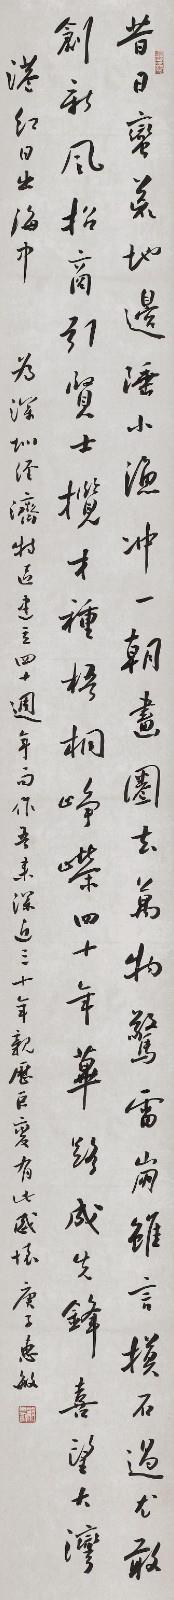 昔日蛮荒地邊陲小漁冲一朝畫圈去萬物驚雷崩雖言摸石過尤敢
創新風招商引賢士攬才種梧桐崢嶸四十年蓽路成先鋒喜望大灣
港紅日出海中
為深圳經濟特區建立四十週年而作吾來深近三十年親歷巨變有此感懷 庚子惠敏